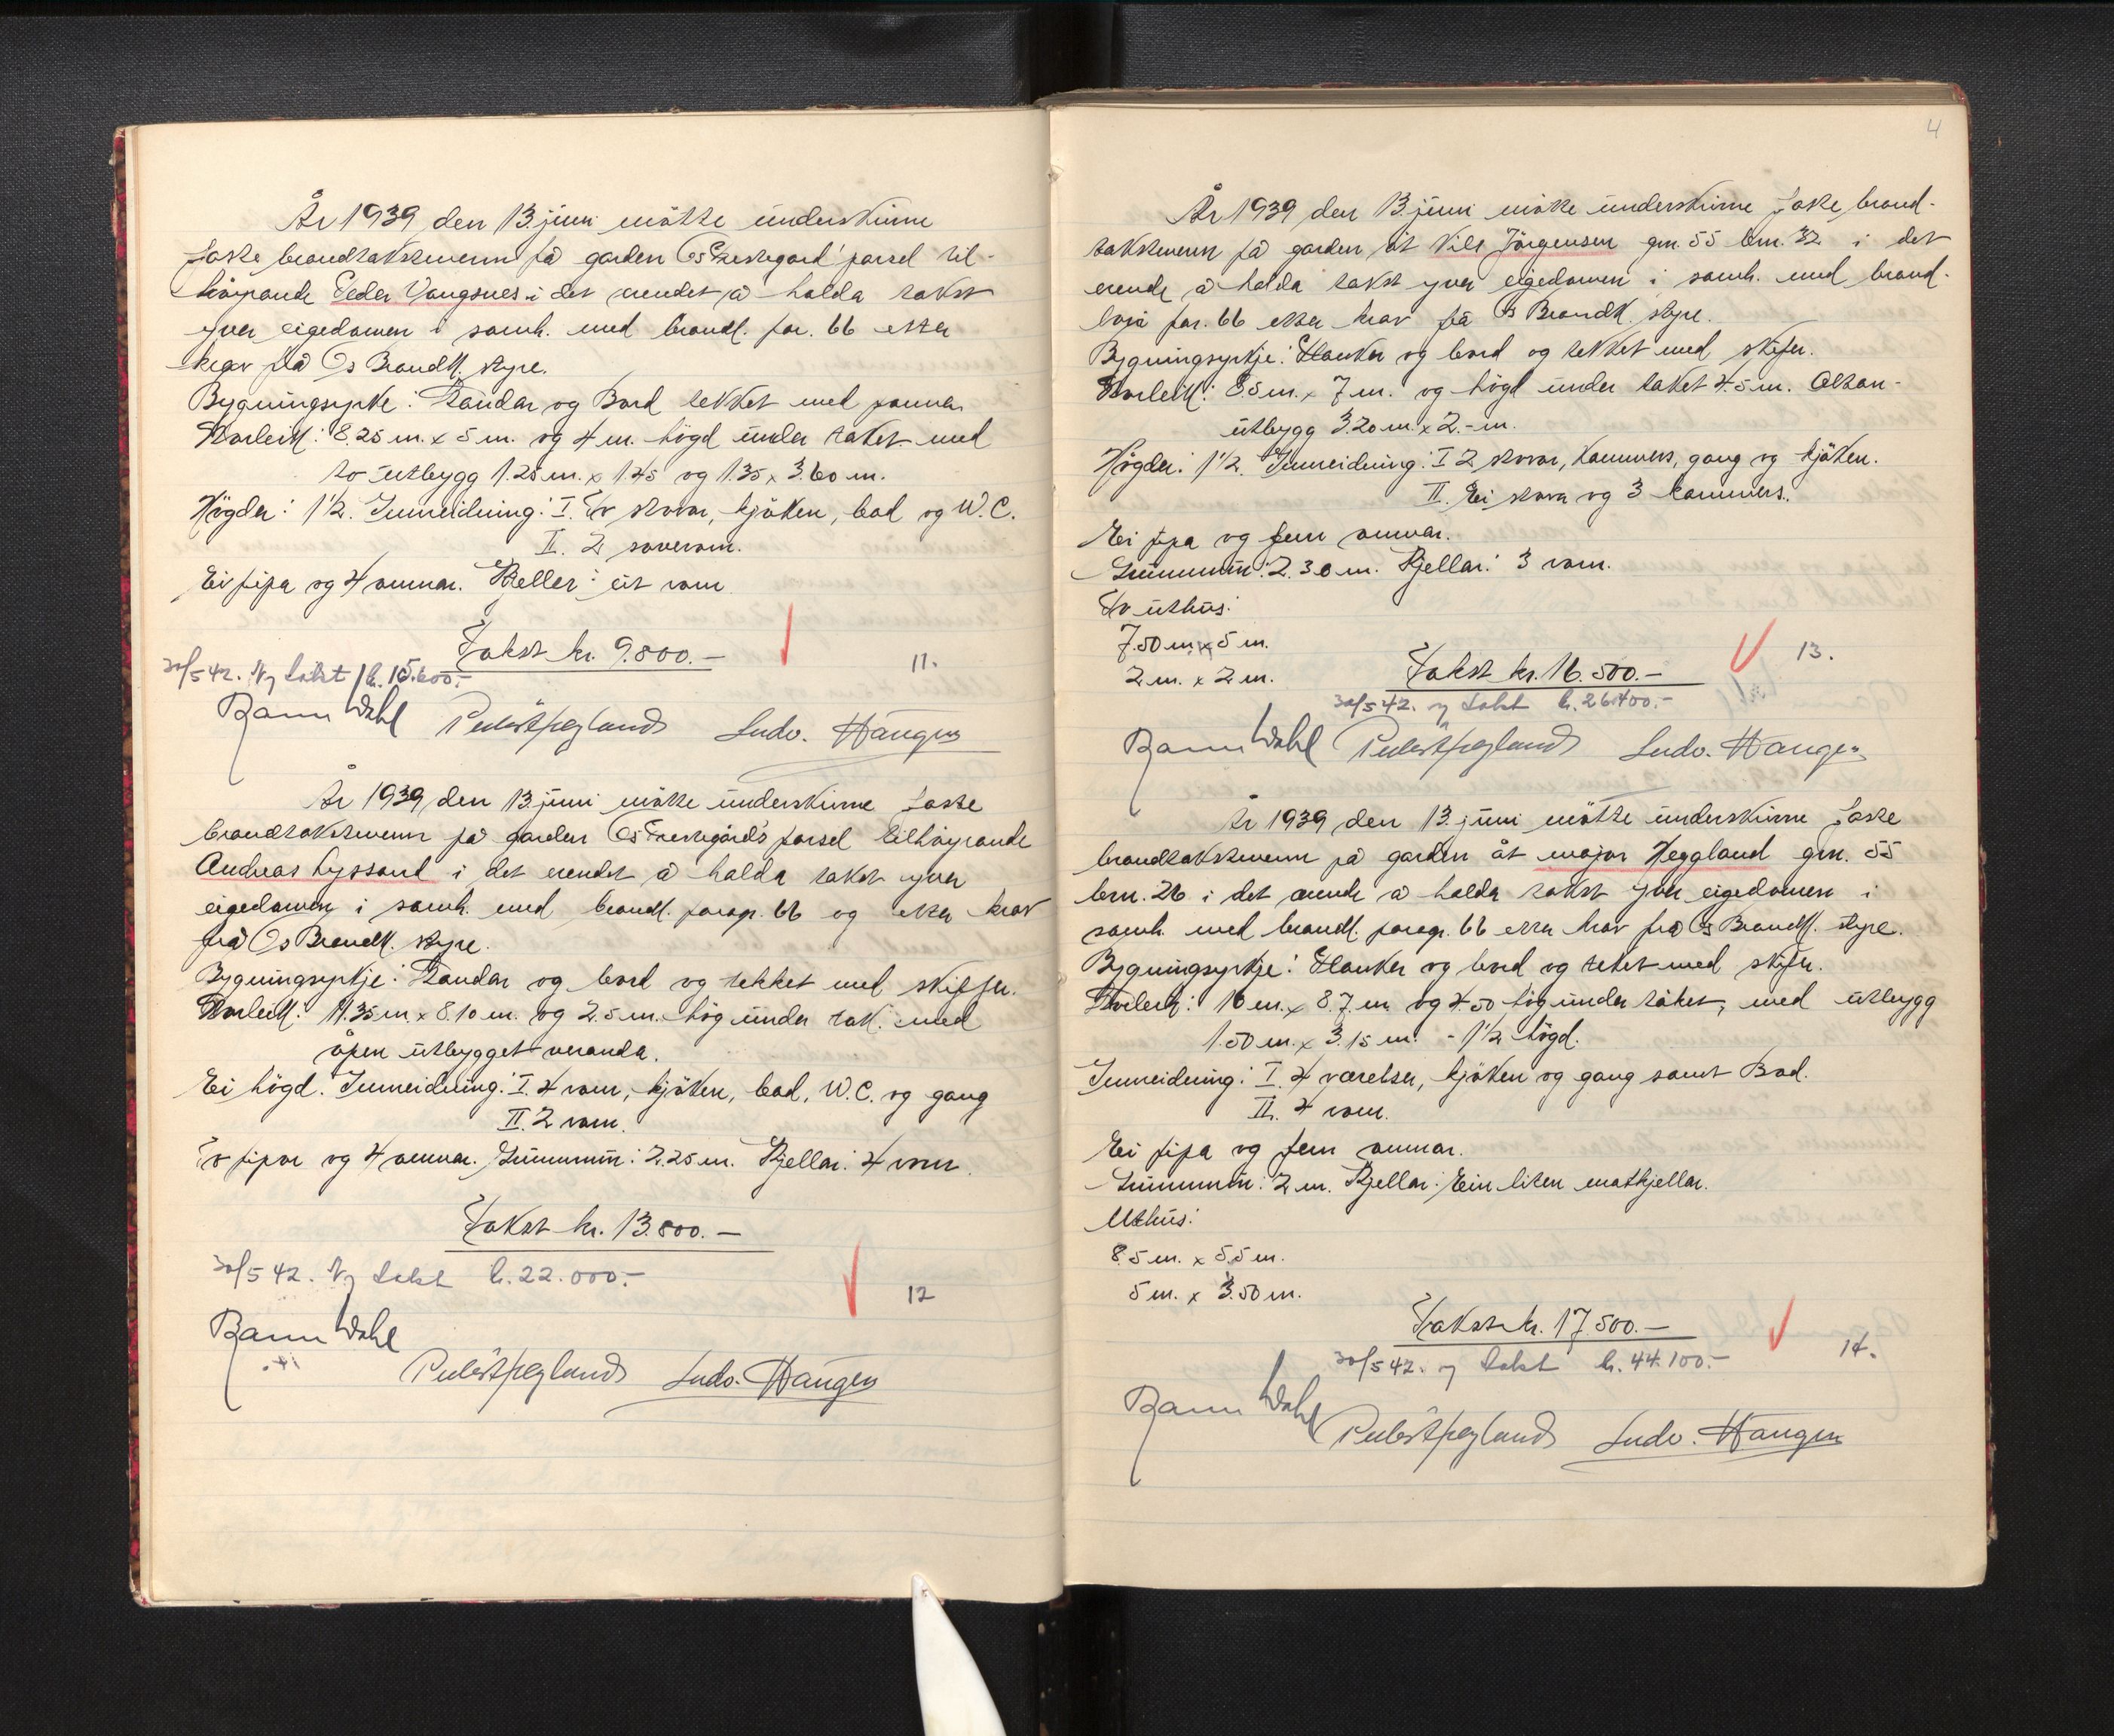 År 1939 den 13. juni møtte underskrivne
faste brandtakstmenn på garden Os Prestegard' parsel til-
høyrande Peder Vangsnes i det ærendet å halda takst
yver eigedomen i samh. med brandl. par. 66 etter
krav frå Os Brandk. styre.
Bygningsyrkje: Standar og Bord tekket med pannar
Storleik: 8.25 m. x 5 m. og 4 m. högd under taket med
to utbygg 1.25 m. x 1.45 og 1.35 x 3.60 m.
Högder: 1½. Innreidning: I. To stovor, kjöken, bad og W.C.
II. 2 soverom.
Ei pipa og 4 omnar. Kjeller: eit rom
Takst kr. 9.800.—
11.
30/5 42. Ny takst kr. 15.600.-
Wahl Ludv. Haugen
År 1939 den 13. juni møtte underskrivne faste
brandtakstmenn på garden Os Prestegård's parsel tilhøyrande
Andreas Lyssand i det erendet å halda takst yver
eigedomen i samh. med brandl. paragr. 66 og etter krav
frå Os Brandk. styre.
Bygningsyrkje: Standar og bord og tekket med skiffer.
Storleik: 11.35 m. x 8.10 m. og 2.5 m. høg under tak. med
åpen utbygget veranda.
Ei högd. Innreidning: I. 4 rom, kjöken, bad, W.C. og gang
II. 2 rom.
To pipor og 4 omnar. Grunnmur: 2.25 m. Kjellar: 4 rom.
Takst kr. 13.800.—
30/5 42. Ny takst kr. 22.000.-
12
Wahl
Ludv. Haugen
4
År 1939 den 13. juni møtte underskrivne faste brand-
takstmenn på garden åt Nils Jörgensen gnr. 55 bnr. 32 i det
erende å halda takst yver eigedomen i samh. med brand-
lova par. 66 etter krav frå Os Brandk. styre.
Bygningsyrkje: Plankar og bord og tekket med skifer.
Storleik: 8.5 m. x 7 m. og högd under taket 4.5 m. Altan-
utbygg 3.20 m. x 2.- m.
Högder: 1½. Innreidning: I 2 stovor, kammers, gang og kjöken.
II. Ei stova og 3 kammers.
Ei pipa og fem omnar.
Grunnmur: 2.30 m. Kjellar: 3 rom.
To uthus:
7.50 m. x 5 m.
2 m. x 2 m.
Takst kr. 16.500.—
13.
30/5 42. ny takst kr. 26.400.-
Wahl Ludv. Haugen
År 1939 den 13. juni møtte underskrivne faste
brandtakstmenn på garden åt major Heggland gnr. 55
bnr. 26 i det ærende å halda takst yver eigedomen i
samh. med brandl. paragr. 66 etter krav frå Os Brandk. styre.
Bygningsyrkje: Plankar og bord og teket med skifer.
Storleik: 10 m. x 8.7 m og 4.50 høg under taket, med utbygg
1.50 m. x 3.15 m. - 1½ högd.
Innreidning: I. 4 værelser, kjöken og gang samt Bad.
II. 4 rom.
Ei pipa og fem omnar.
Grunnmur: 2 m. Kjellar: Ein liten matkjellar.
Uthus:
8.5 m. x 5.5 m.
5 m. x 3.50 m.
Takst kr. 17.500.—
14.
30/5 42. ny takst kr. 44.100.-
Wahl Ludv. Haugen